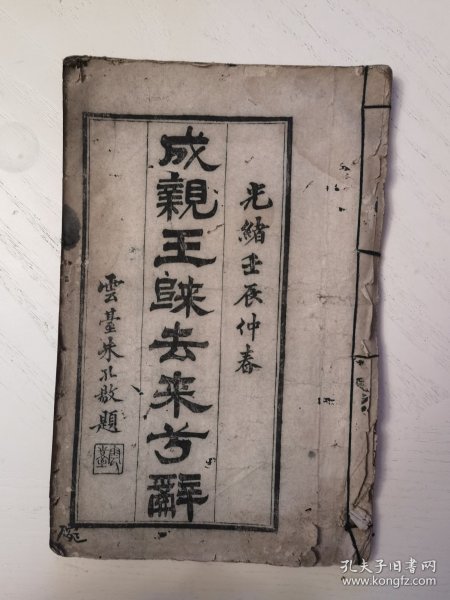 光緒壬辰仲春
成親王歸去来兮辭
雲臺朱孔敭題
孔夫子旧书网
www.kongfz.com